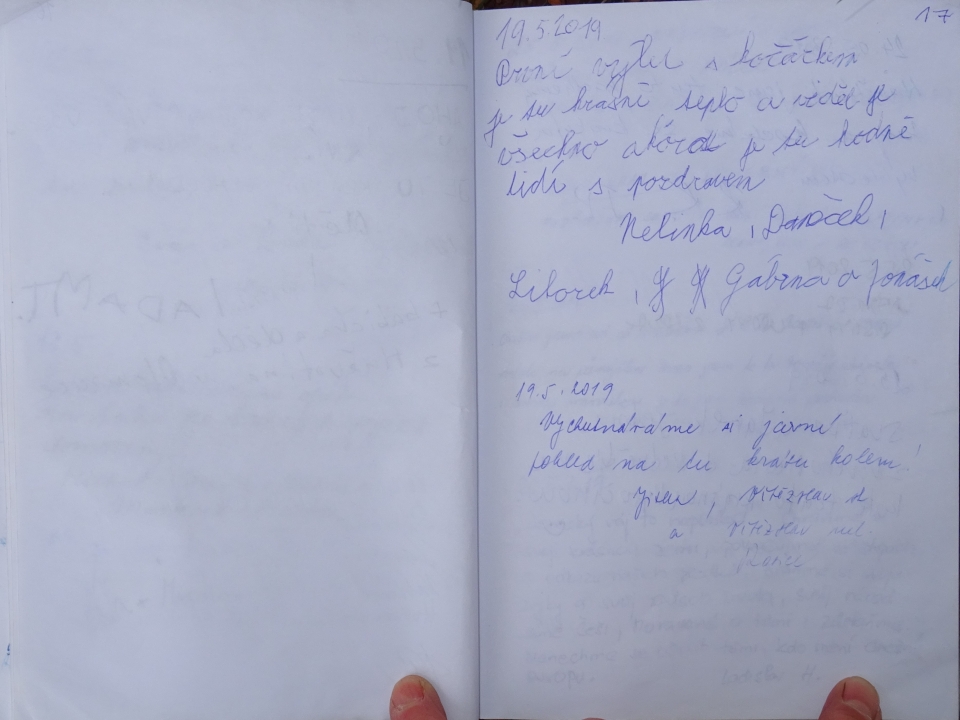 17
19.5.2019
První výlet s kočárkem
je tu krásně teplo a vidět je
všechno akorát je tu hodně
lidí s pozdravem
Nelinka, Daneček,
Liborek, Gábina a Jonášek
19.5.2019
Vychutnáváme si jarní
pohled na tu krásu kolem!
Vítězslav st
a Vítězslav ml.